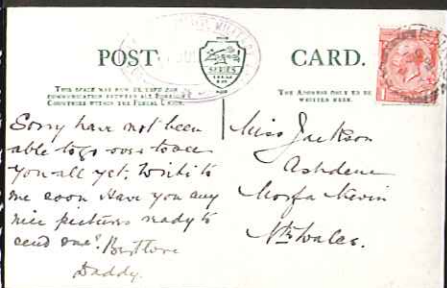 POST CARD.
THIS SPACE MAY NOW BE USED FOR
COMMUNICATION BETWEEN ALL FOREIGN
COUNTRIES WITHIN THE POSTAL UNION.
THE ADDRESS ONLY TO BE
WRITTEN HERE.
Sorry have not been
able to go over to see
you all yet. Write to
me soon Have you any
nice pictures ready to
send me? Best love
Daddy.
Miss Jackson
Ashdene
Morfa Nevin
Nth Wales.